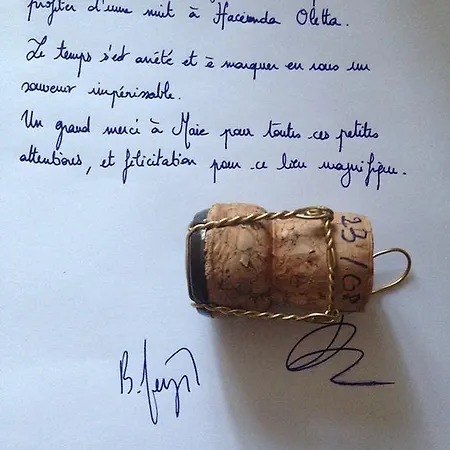 profiter d'une nuit à Hacienda Oletta.
Le temps s'est arrêté et à marquer en nous un
souvenir impérissable.
Un grand merci à Marie pour toutes ces petites
attentions, et félicitation pour ce lieu magnifique.
23/08
B.